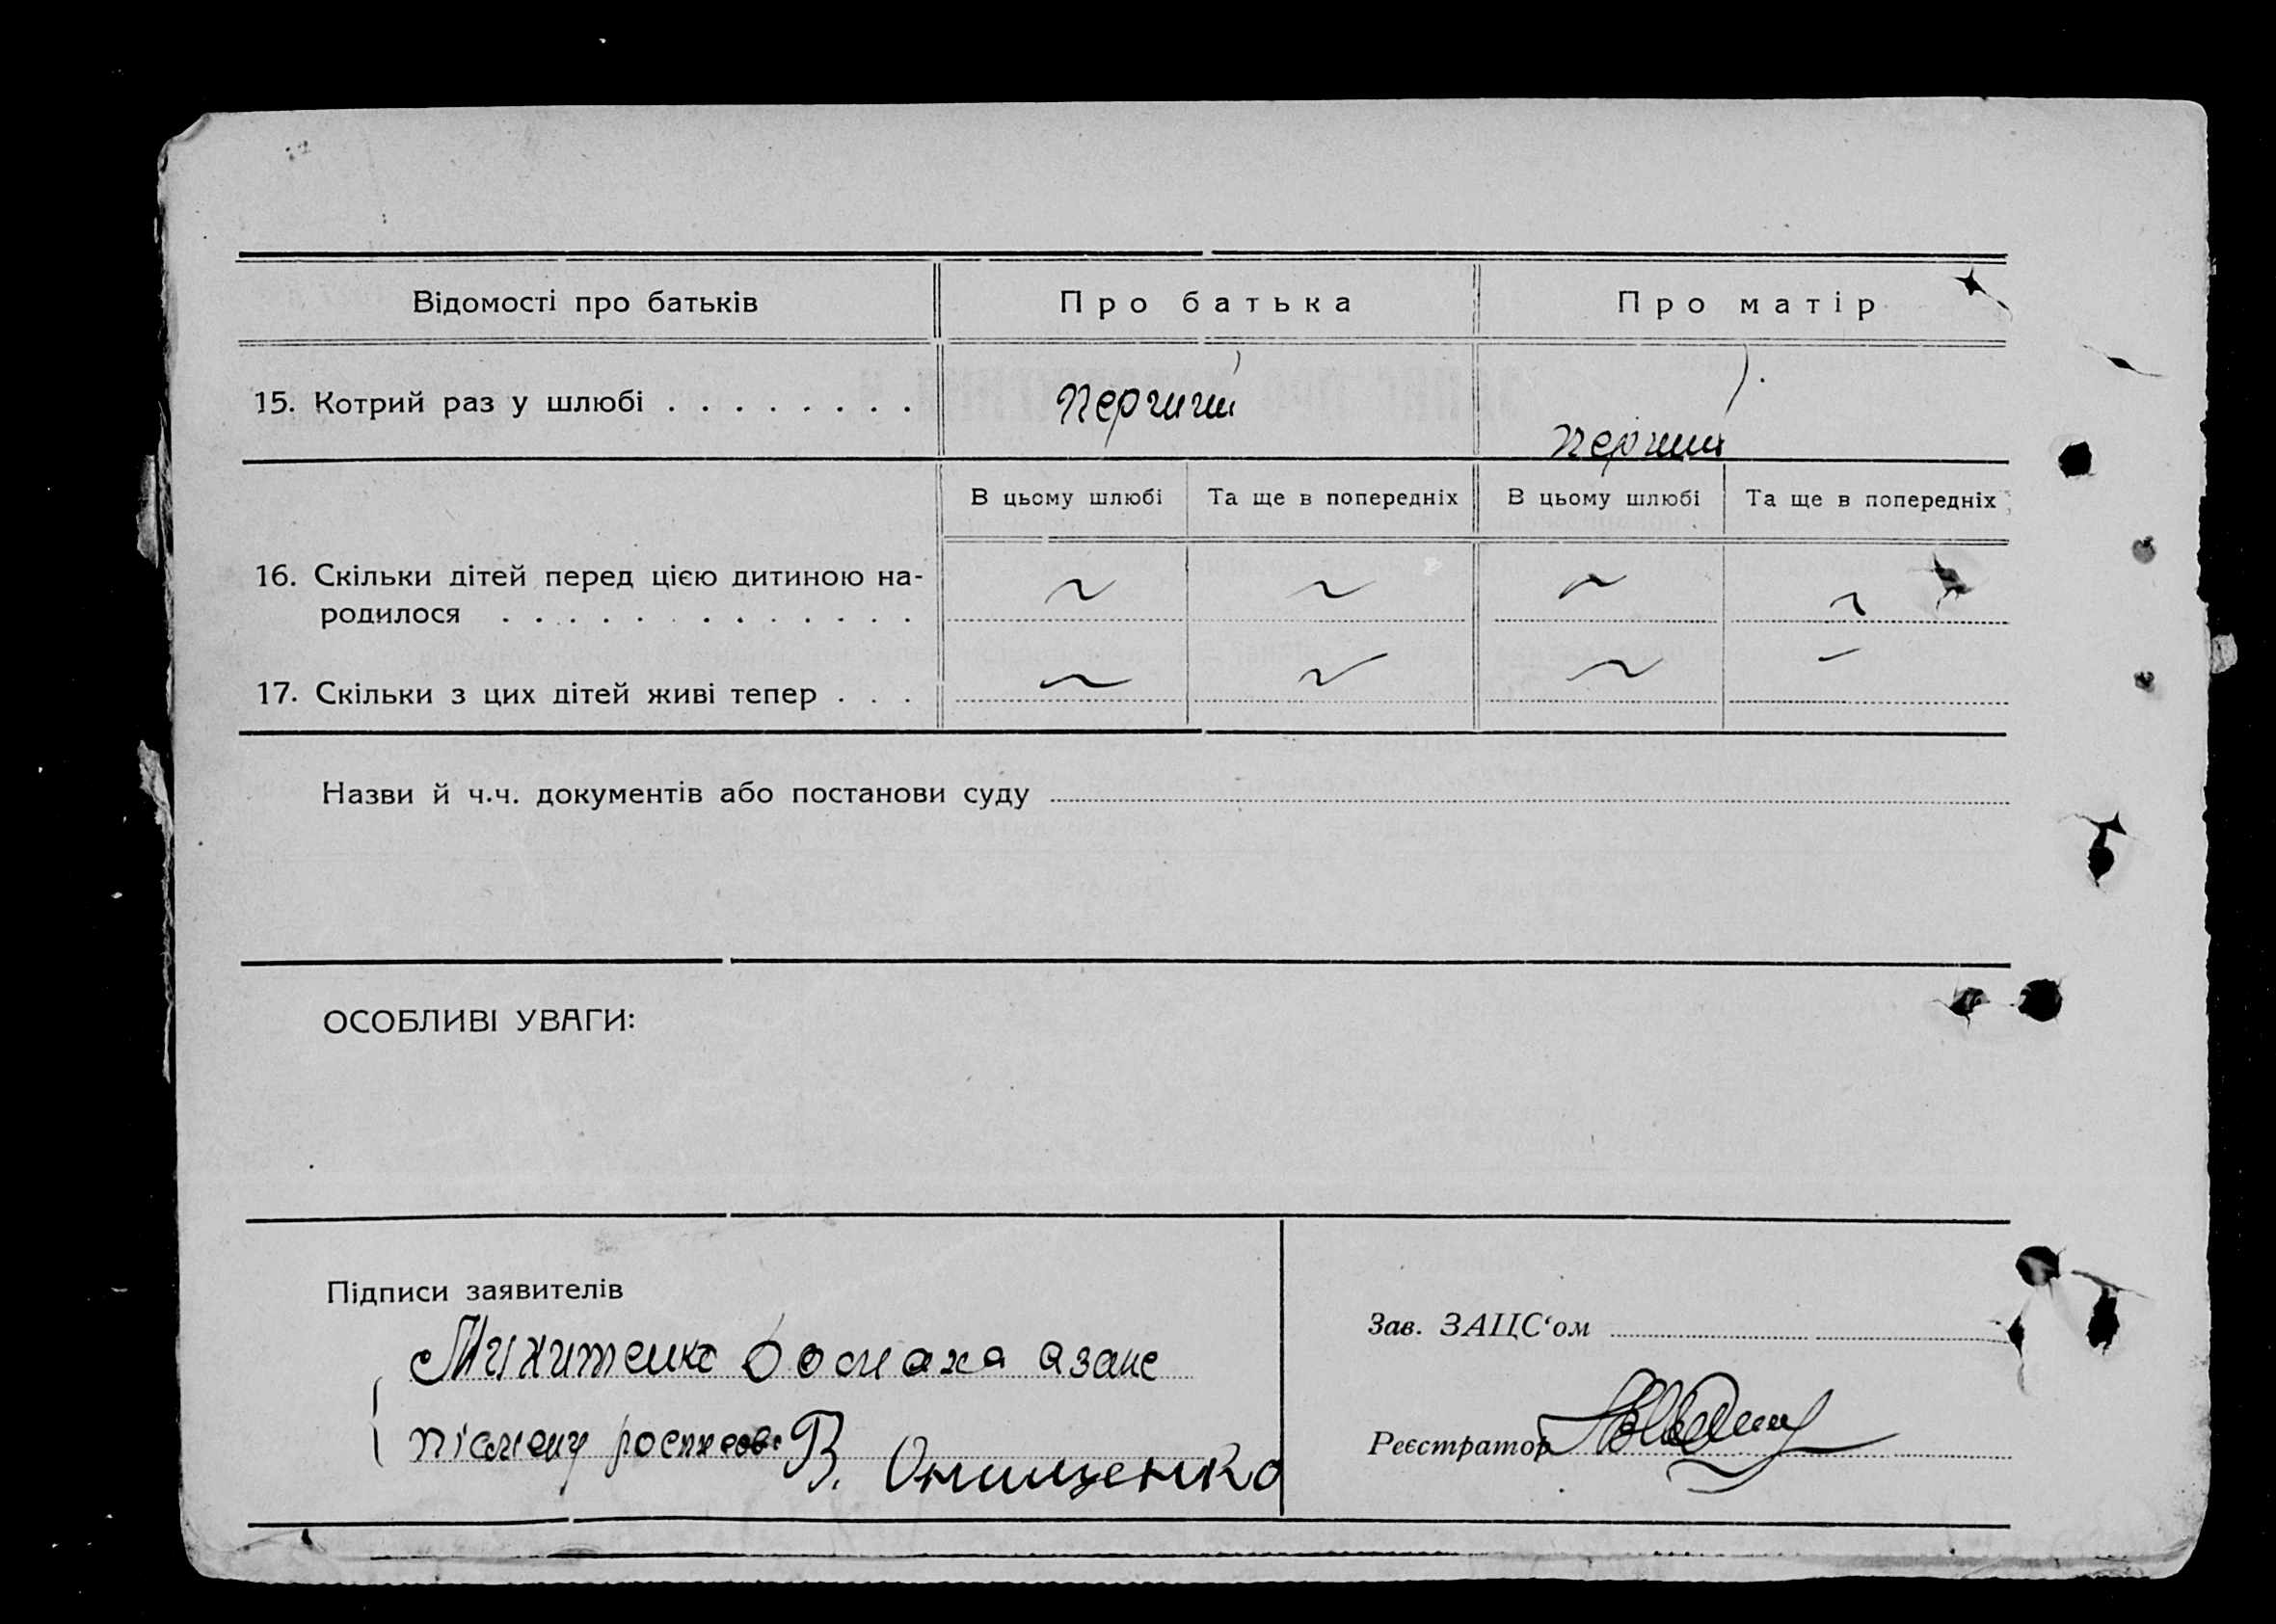 Відомості про батьків Про батька Про матір
15. Котрий раз у шлюбі . . . . . . . . перший перший
В цьому шлюбі Та ще в попередніх В цьому шлюбі Та ще в попередніх
16. Скільки дітей перед цією дитиною на-
родилося . . . . . . . . . . . . . ~ ~ ~ ~
17. Скільки з цих дітей живі тепер . . . ~ ~ ~ –
Назви й ч.ч. документів або постанови суду
ОСОБЛИВІ УВАГИ:
Підписи заявителів
Микитенко Домаха а за не
Зав. ЗАЦС‘ом
В. Онищенко
Реєстратор